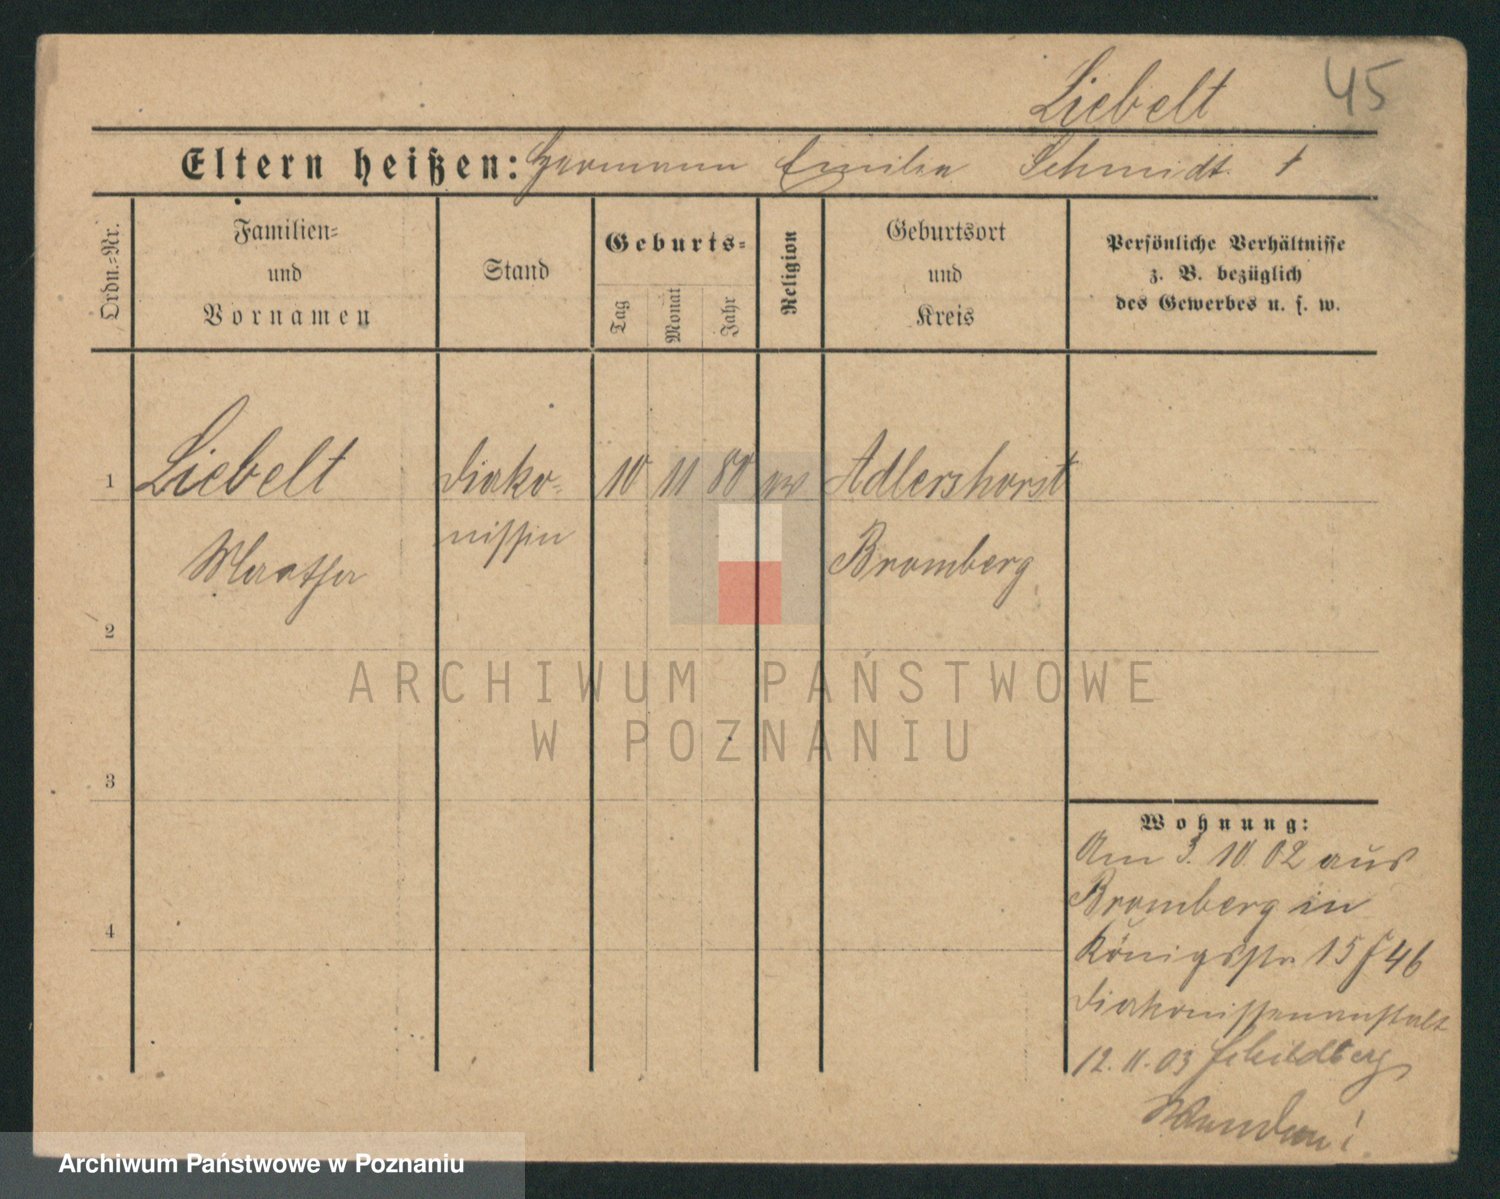 Liebelt
45
Eltern heißen: Hermann Emilie Schmidt †
Ordn.=Nr.
Familien=
und
Vornamen
Stand
Geburts=
Tag
Monat
Jahr
Religion
Geburtsort
und
Kreis
Persönliche Verhältnisse
z. B. bezüglich
des Gewerbes u. s. w.
1
Liebelt
Diako=
10 11 80 ev
Adlershorst
nissin
Martha
Bromberg
2
ARCHIWUM PAŃSTWOWE
W POZNANIU
3
Wohnung:
Am 3. 10 02 aus
Bromberg in
4
Königsstr 15 f 46
Diakonissenanstalt
12. 11. 03 Schildberg
Archiwum Państwowe w Poznaniu